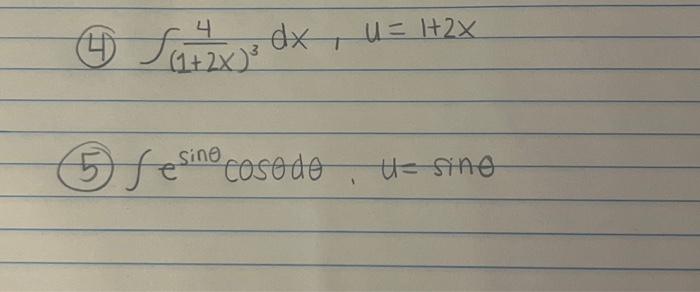 ④ ∫ 4/(1+2x)³ dx , u = 1+2x
⑤ ∫ e^sinθ cosθdθ . u = sinθ